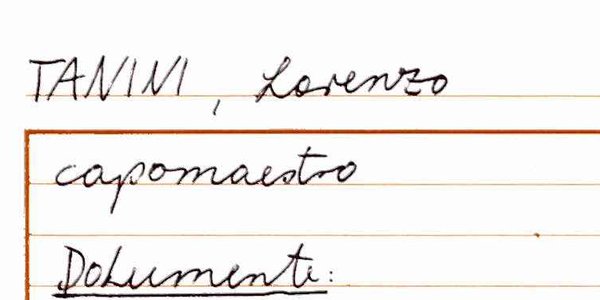 TANINI, Lorenzo
capomaestro
Dokumente: